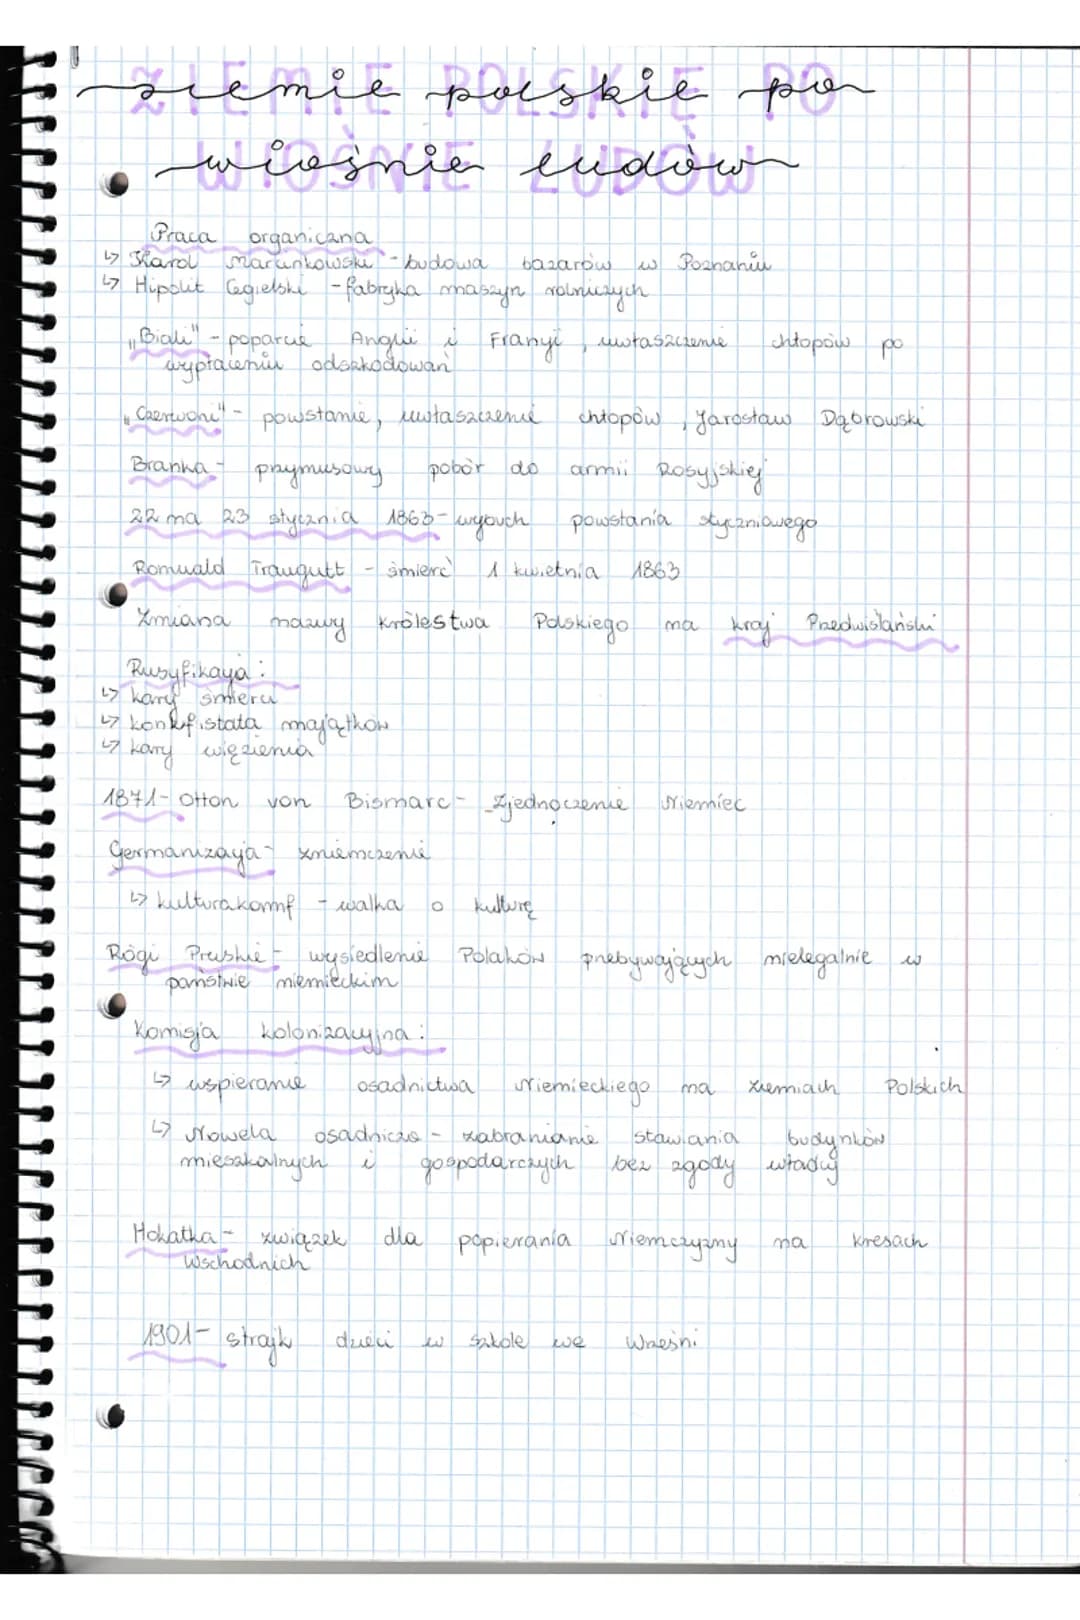 ziemie polskie po
wiośnie ludów
Praca organiczna
↳ Karol Marcinkowski - budowa bazarów w Poznaniu
↳ Hipolit Cegielski - fabryka maszyn rolniczych
"Biali" - poparcie Anglii i Francji, uwłaszczenie chłopów po
wypłaceniu odszkodowań
"Czerwoni" - powstanie, uwłaszczenie chłopów, Jarosław Dąbrowski
Branka - przymusowy pobór do armii Rosyjskiej
22 na 23 stycznia 1863 - wybuch powstania styczniowego
Romuald Traugutt - śmierć 1 kwietnia 1863
Zmiana nazwy królestwa Polskiego na kraj Przedwiślański
Rusyfikacja:
↳ kary śmierci
↳ konkfistata majątków
↳ kary więzienia
1871 - Otton von Bismarc - Zjednoczenie Niemiec
Germanizacja - zniemczenie
↳ kulturakomf - walka o kulturę
Rógi Pruskie - wysiedlenie Polaków przebywających nielegalnie w
państwie niemieckim
Komisja kolonizacyjna:
↳ wspieranie osadnictwa Niemieckiego na ziemiach Polskich
↳ Nowela osadnicza - zabranianie stawiania budynków
mieszkalnych i gospodarczych bez zgody władzy
Hokatka - związek dla popierania Niemczyzny na kresach
Wschodnich
1901 - strajk dzieci w szkole we Wrześni